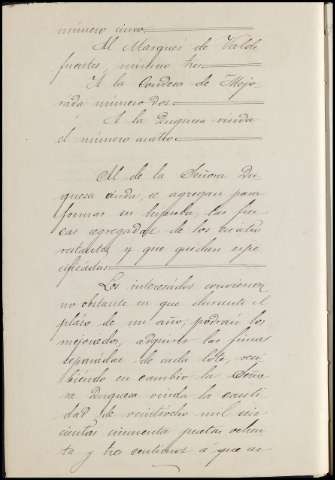 número cinco.
Al Marqués de Valde
fuertes, número tres.
A la Condesa de Mejo
rada número dos.
A la Duquesa viuda
el número cuatro.
Al de la Señora Du
quesa viuda, se agregan para
formar su hijuela, las fin
cas segregadas de los cuatro
restantes y que quedan espe
cificadas.
Los interesados convienen
no obstante en que durante el
plazo de un año, podrán los
mejorados, adquirir las fincas
separadas de cada lote, reci
biendo en cambio la Seño
ra Duquesa viuda la canti
dad de veintiocho mil seis
cientas cincuenta pesetas ochen
ta y tres centimos á que as